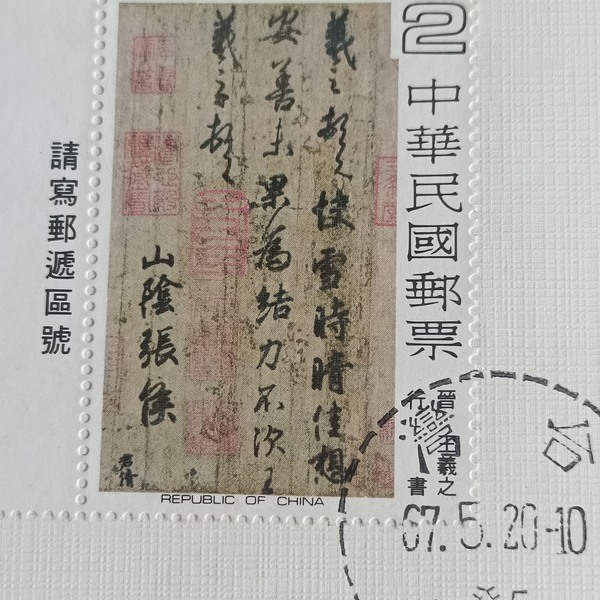 2
中華民國郵票
羲之頓首快雪時晴佳想
安善未果為結力不次王
羲之頓首
山陰張侯
君倩
請寫郵遞區號
晉王羲之
行書
REPUBLIC OF CHINA
67.5.20-10